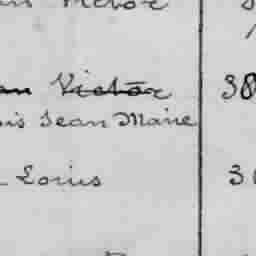 Victor
an Victor 38
ois Jean Marie
Louis 3